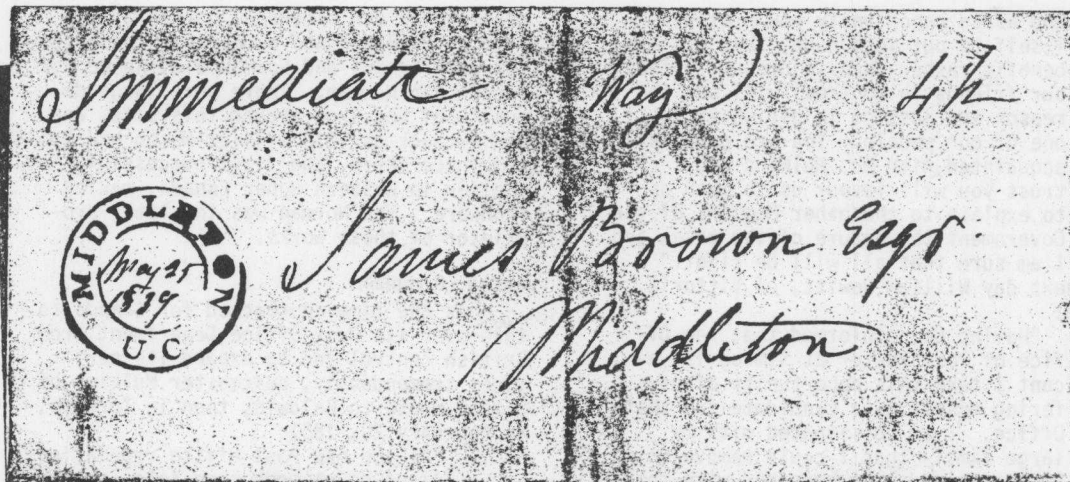 Immediate Way 4½
MIDDLETON
May 25
1839
U.C
James Brown Esqr.
Middleton